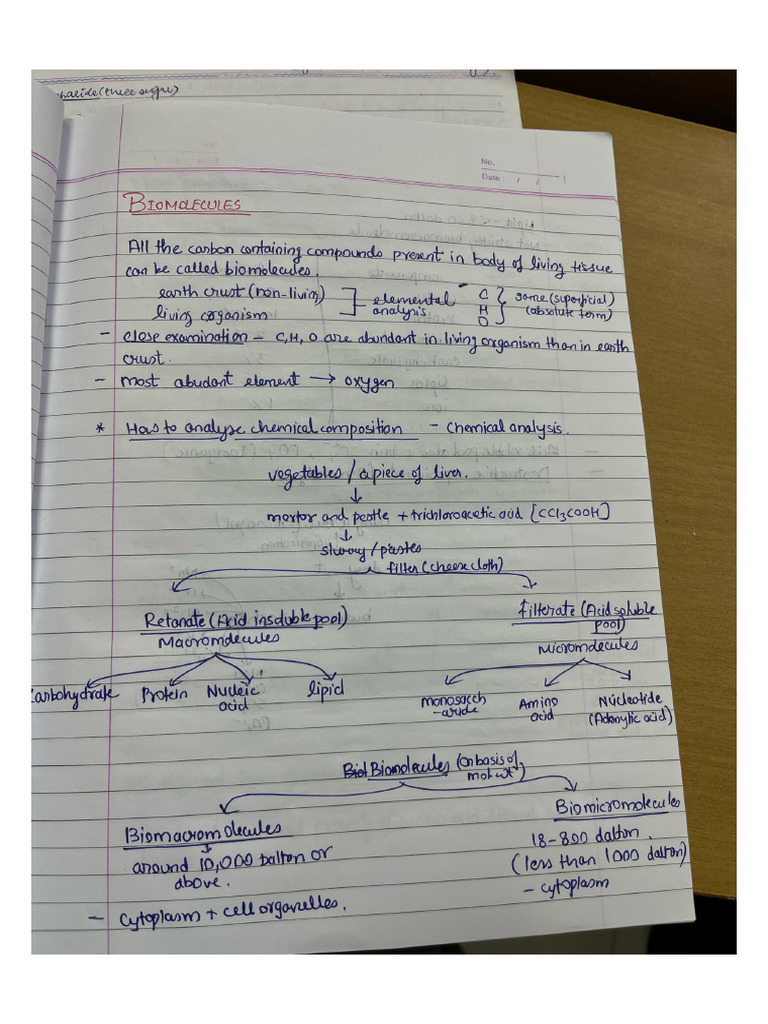 haride (three sugar)
No.
Date : / /
BIOMOLECULES
All the carbon containing compounds present in body of living tissue
can be called biomolecules.
earth crust (non-living)
living organism
elemental
analysis
C
H
O
same (superficial)
(absolute term)
- close examination - C, H, O are abundant in living organism than in earth
crust.
- most abudant element → oxygen
* How to analyse chemical composition - chemical analysis.
vegetables / a piece of liver.
↓
mortor and pestle + trichloroacetic acid [CCl3COOH]
↓
slurry / pastes
filter (cheese cloth)
Retanate (Acid insoluble pool)
Macromolecules
Filterate (Acid soluble
pool)
Micromolecules
Carbohydrate Protein Nucleic acid lipid
monosacch
-aride
Amino
acid
Nucleotide
(Adenylic acid)
Biol Biomolecules (on basis of
mol wt)
Biomacromolecules
↓
around 10,000 Dalton or
above.
- cytoplasm + cell organelles.
Biomicromolecules
18-800 dalton.
(less than 1000 dalton)
- cytoplasm